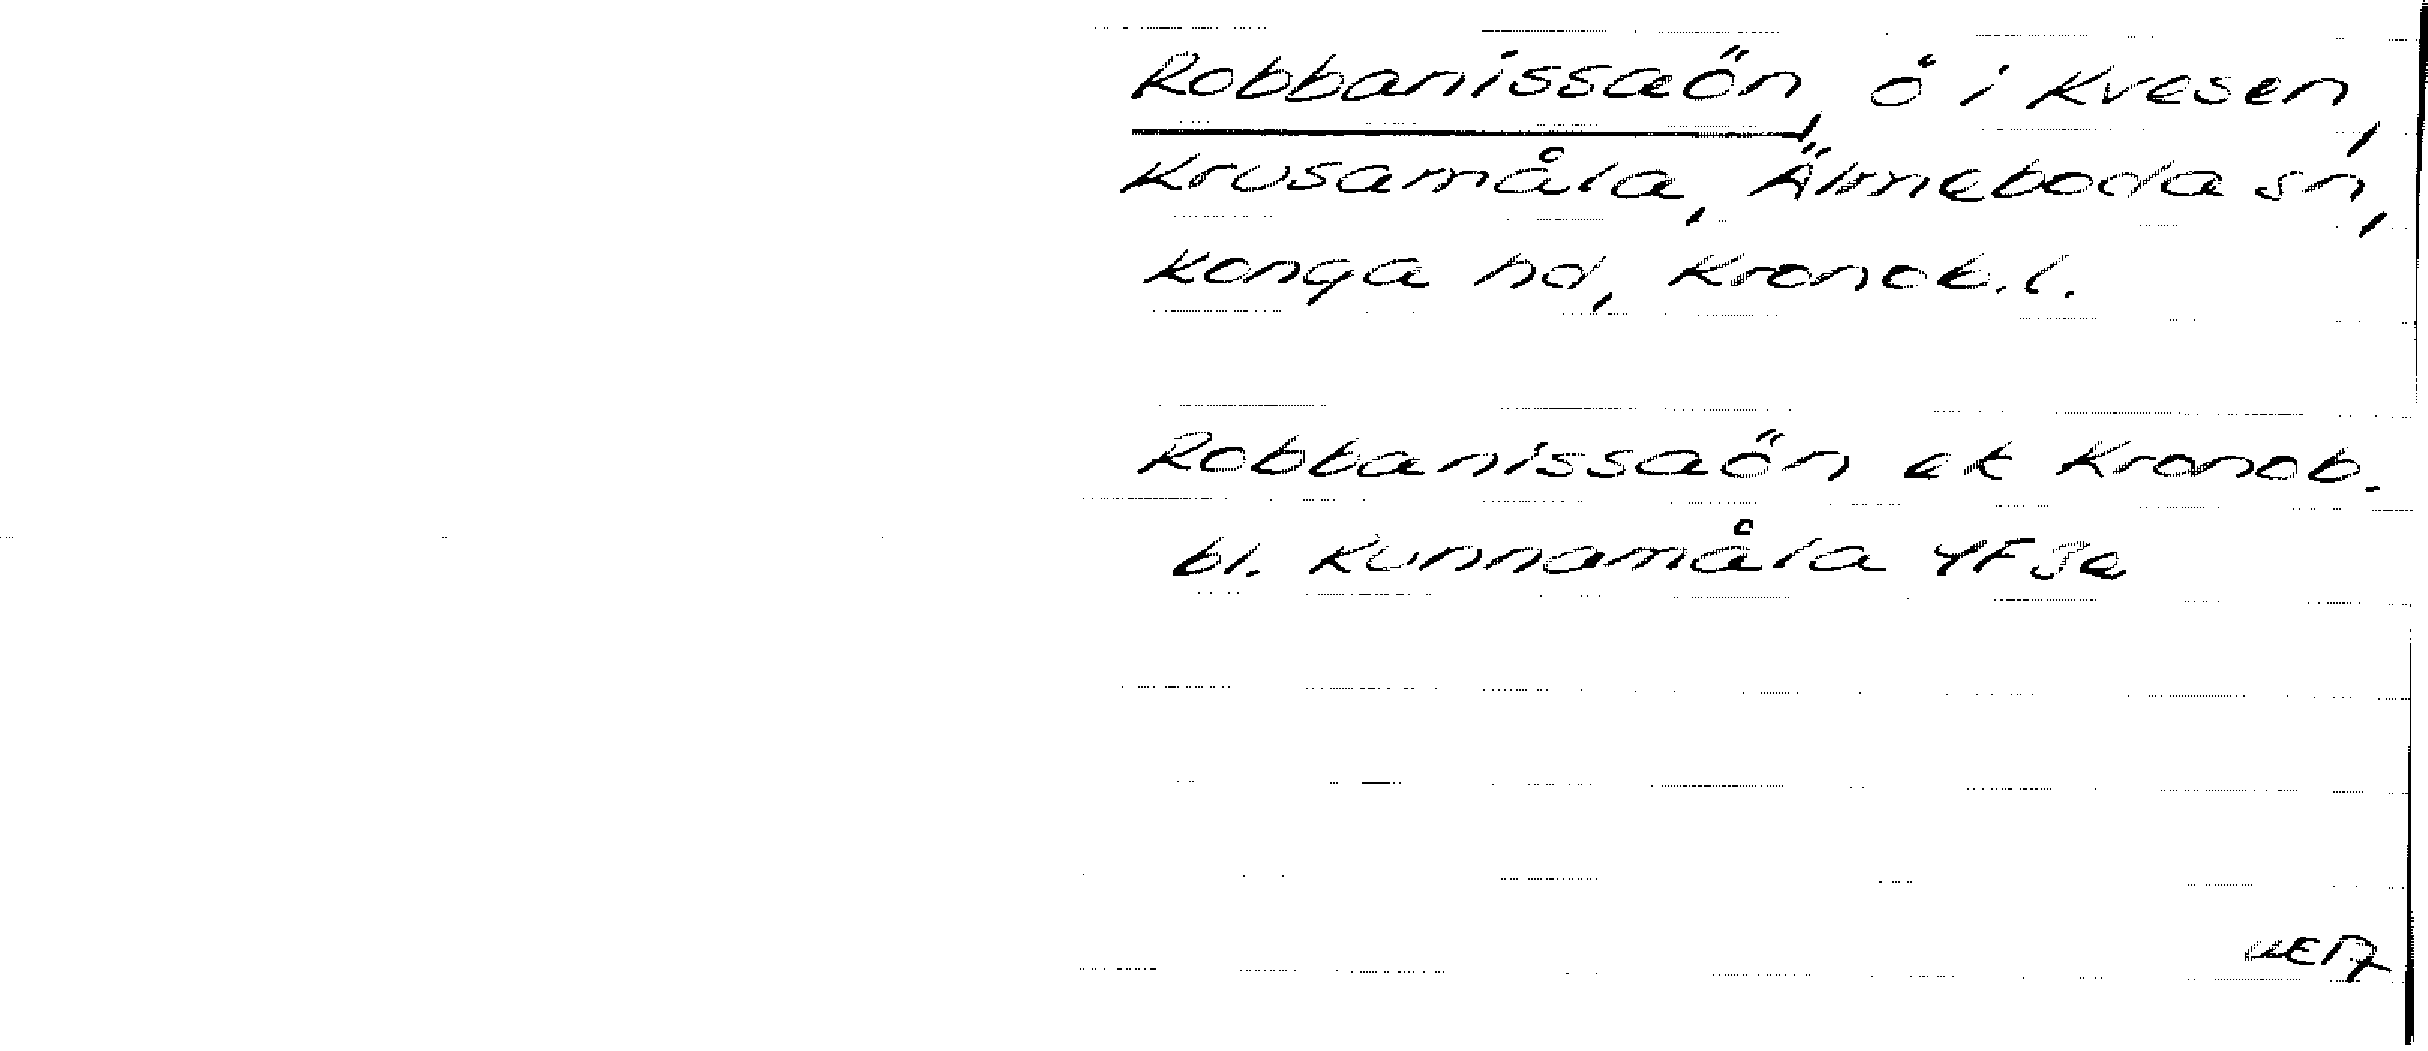 Robbanissaön, ö i Kvesen,
Krusamåla, Älmeboda sn,
Konga hd, Kronob.l.
Robbanissaön ek Kronob.
bl. Kunnamåla 4F3e